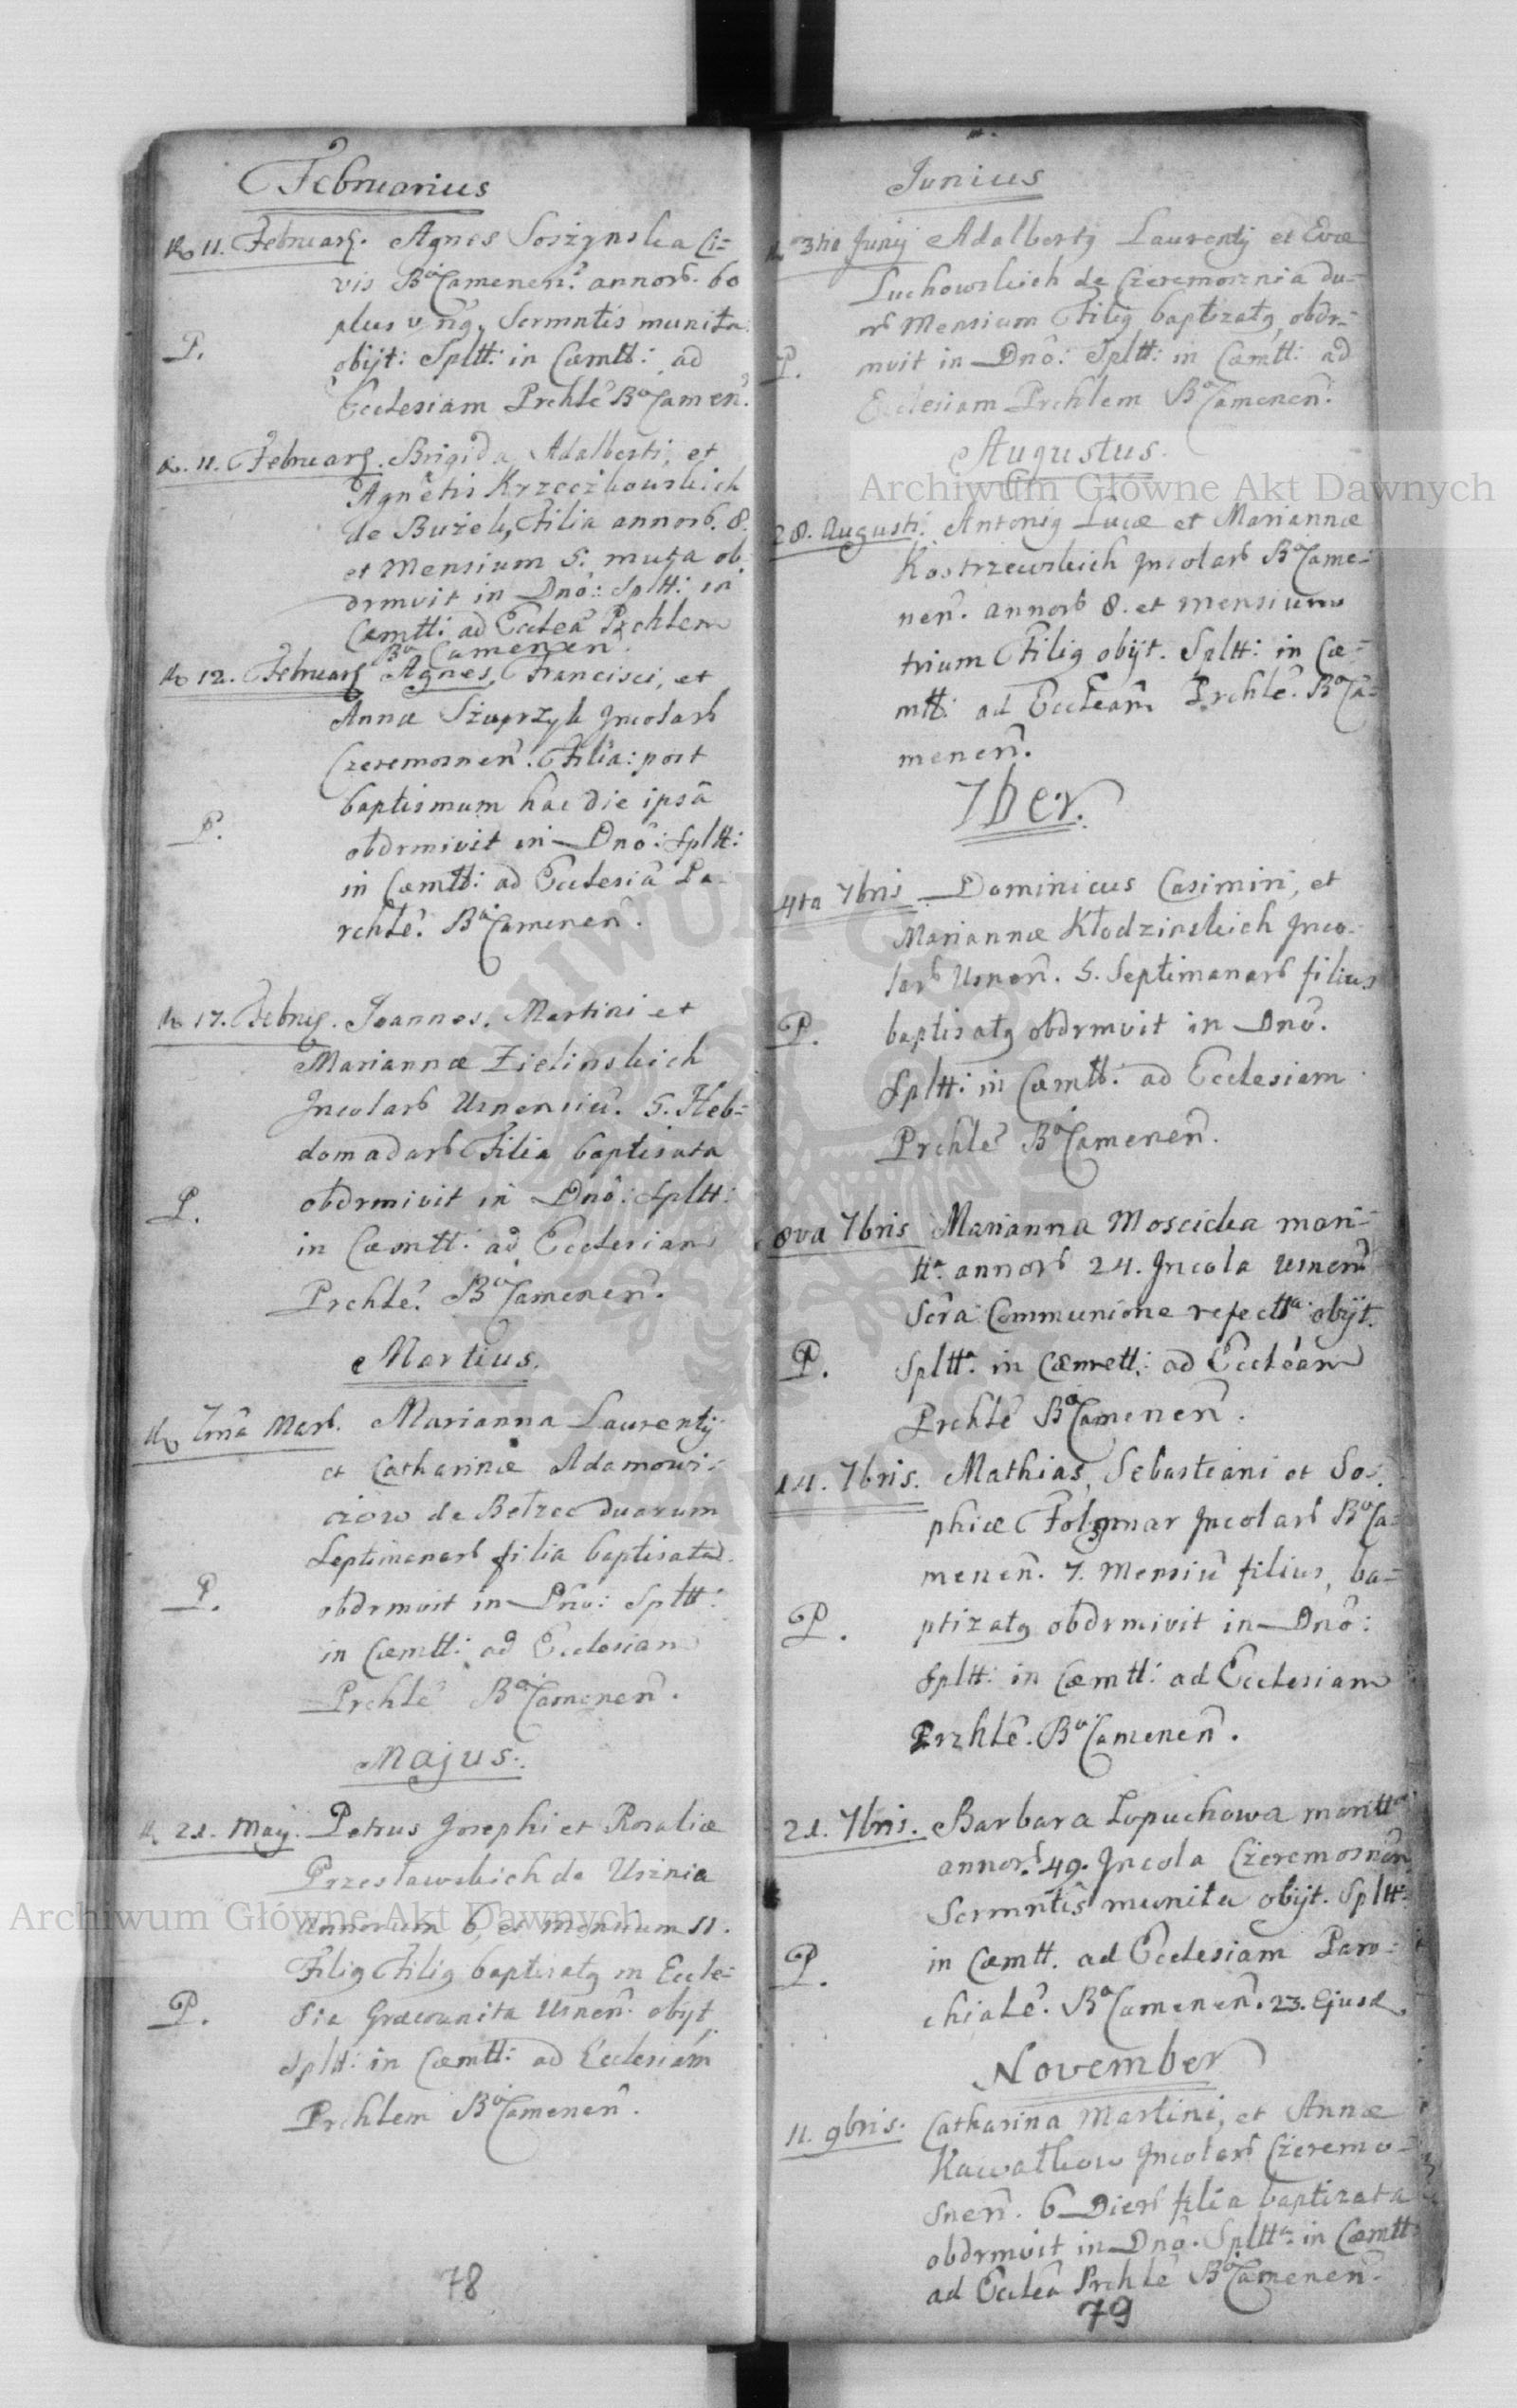 Februarius
11. Februarij. Agnes Soszynska Ci=
vis BaCamenen: annor. 60
plus v. Scrmntis munita
P. obijt: Spltt: in Cœmtt: ad
Ecclesiam Prchle BaCamen.
11. Februarij. Brigida Adalberti, et
Agnetis Krzeczkowskich
de Buzek, Filia annor. 8.
et Mensium 5. muta ob
drmvit in Dno: Spltt: in
Cœmtt: ad Eccleã Prchlem
Ba Camenen.
12. Februarij Agnes, Francisci, et
Annæ Szuprzyk Jncolar
Czeremosnen. Filia: post
baptismum hac die ipsâ
P. obdrmivit in Dno: Spltt:
in Cœmtt: ad Ecclesiã Pa-
rchle. BaCamenen.
17. Febrij. Joannes. Martini et
Mariannæ Zielinskich
Jncolar Usnensiũ. 5. Heb=
domadar Filia baptisata
P. obdrmivit in Dno: Spltt:
in Cœmtt: ad Ecclesiam
Prchle. BaCamenen.
Martius.
7ma Mar. Marianna Laurentij
et Catharinæ Adamowi-
czow de Betzec duarum
Septimanar filia baptisata
P. obdrmvit in Dno: Spltt:
in Cœmtt: ad Ecclesiam
Prchle BaCamenen.
Majus.
21. Maij. Petrus Josephi et Rosaliæ
Przeslawskich de Usznia
Annorum 6, et Mensium 11.
Filig Filig baptisatg in Eccle=
P. sia Græcounita Usnen. obijt
Spltt: in Cœmtt: ad Ecclesiam
Prchlem BaCamenen.
78
Junius
3tia Junij Adalbertg Laurentij et Evæ
Luchowskich de Czeremosznia du-
or Mensium Filig baptizatg, obdr=
P. mvit in Dno: Spltt: in Cœmtt: ad
Ecclesiam Prchlem BaCamenen:
Augustus.
Archiwum Główne Akt Dawnych
28. Augusti. Antonig Lucæ et Mariannæ
Kostrzewskich Jncolar BaCame-
nen. annor 8. et mensium
trium Filig obijt. Spltt: in Cœ-
mtt: ad Eccleam Prchle. BaCa-
menen.
7ber.
4ta 7bris Dominicus Casimiri, et
Mariannæ Kłodzinskich Jnco-
lar Usnen. 5. Septimanar filius
P. baptisatg obdrmvit in Dno.
Spltt: in Cœmtt: ad Ecclesiam
Prchle BaCamenen.
8va 7bris Marianna Moscicka mari=
tta annor 24. Jncola Usnen
Scra Communione refectta obijt.
P. Spltta in Cœmett: ad Eccleam
Prchle BaCamenen.
14. 7bris. Mathias, Sebastiani et So-
phiæ Folgmar Jncolar BaCa=
menen. 7. Mensiũ filius, ba=
P. ptizatg obdrmivit in Dno:
Spltt: in Cœmtt: ad Ecclesiam
Przhle. BaCamenen.
21. 7bris. Barbara Lopuchowa maritta
annor. 49. Jncola Czeremosnen
Scrmntis munita obijt. Spltt:
P. in Cœmtt. ad Ecclesiam Paro=
chiale. BaCamenen. 23. Ejusd
November
11. 9bris. Catharina Martini, et Annæ
Kawałkow Jncolar Czeremo-
snen. 6 Dier filia baptizata
obdrmvit in Dno. Spltta: in Cœmtt:
ad Eccleã Prchle BaCamenen.
79
Archiwum Główne Akt Dawnych